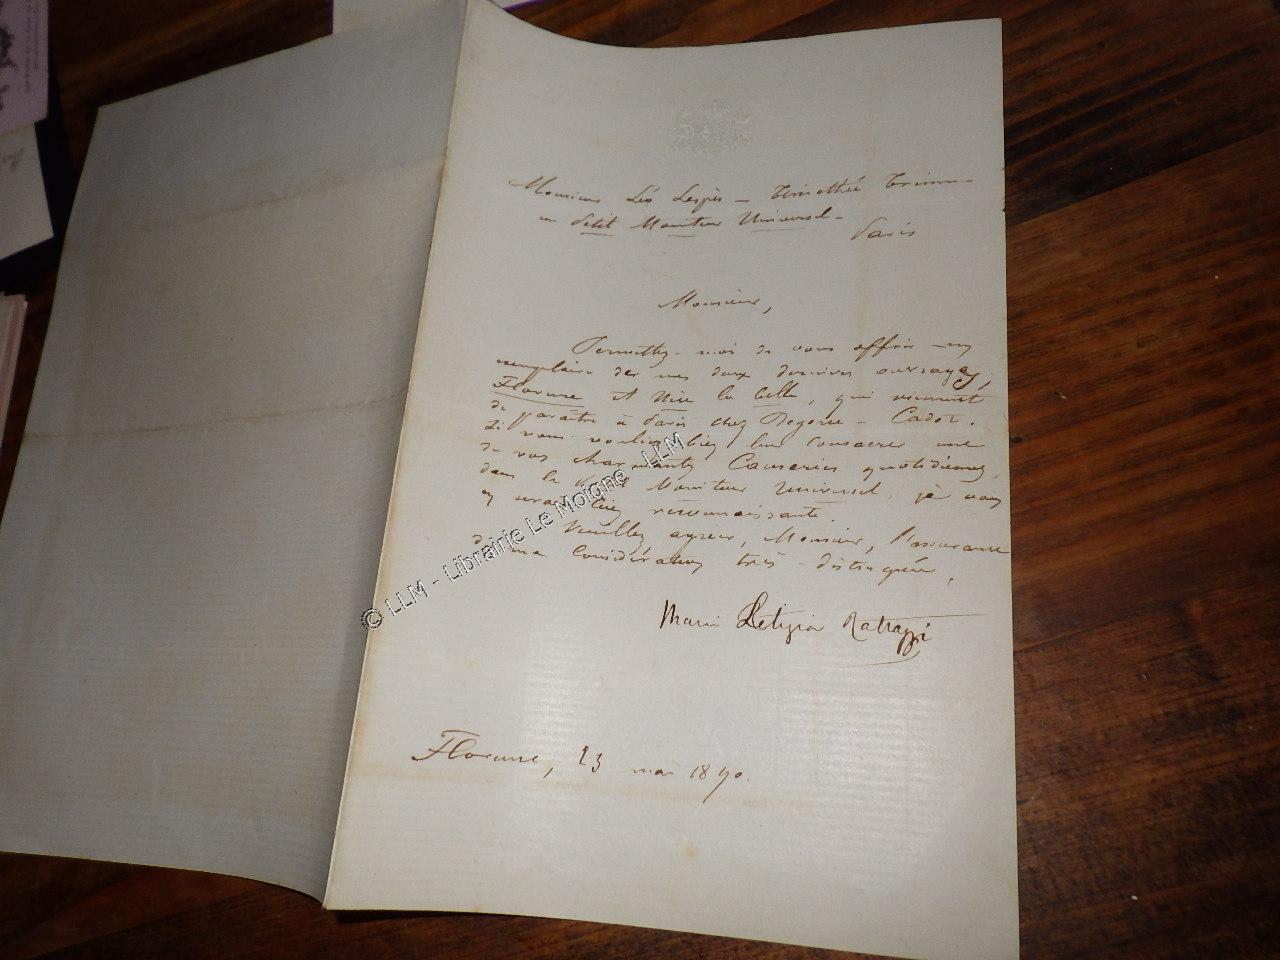 Monsieur Léo Lespès — Timothée Trimm
au Petit Moniteur Universel —
Paris
Monsieur,
Permettez-moi de vous offrir un
exemplaire de mes deux derniers ouvrages,
Florence et Nice la belle, qui viennent
de paraître à Paris chez Degorce-Cadot.
Si vous vouliez bien leur consacrer une
de vos charmantes Causeries quotidiennes,
dans le Petit Moniteur Universel, je vous
en serais bien reconnaissante.
Veuillez agréer, Monsieur, l'assurance
de ma considération très-distinguée,
Marie Letizia Rattazzi
Florence, 23 mai 1870.
© LLM - Librairie Le Moigne - LLM